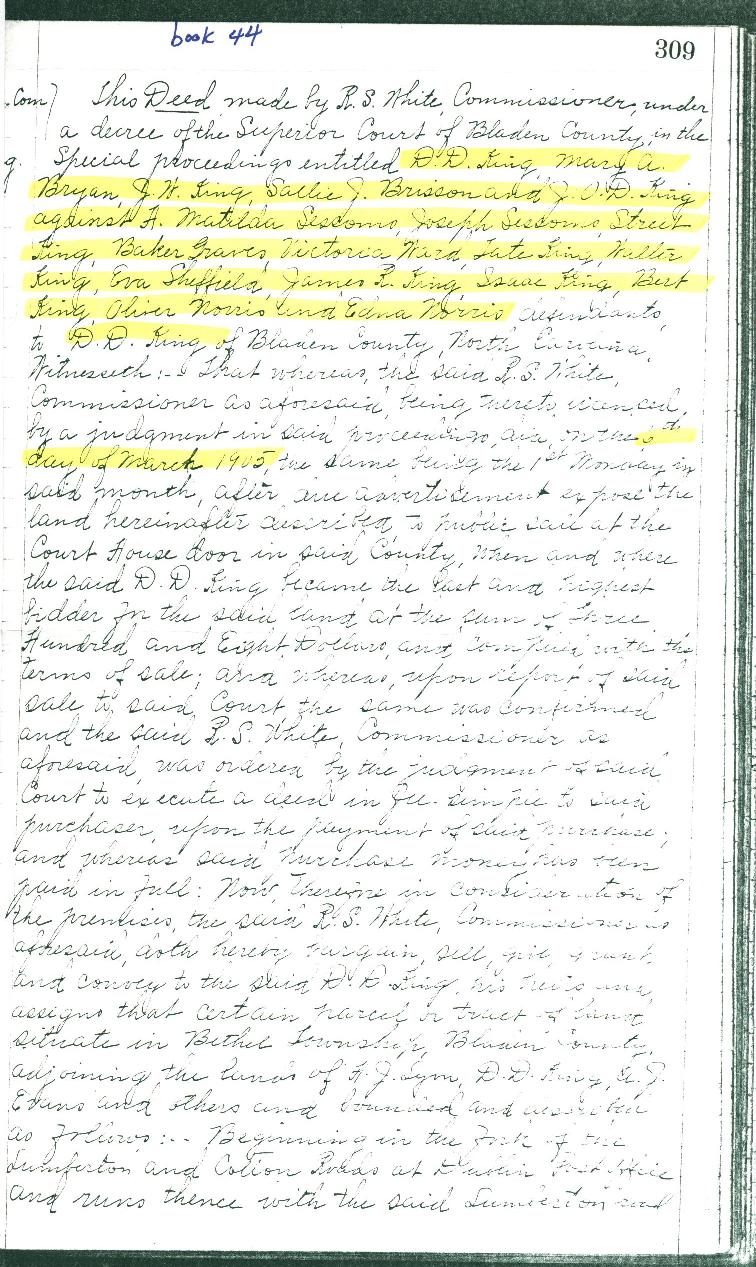 book 44
309
.Com)
This Deed made by R. S. White, Commissioner, under
a decree of the Superior Court of Bladen County, in the
g.
Special proceedings entitled D. D. King, Mary A.
Bryan, J. W. King, Sallie J. Brisson and J. O. D. King
against A. Matilda Sessoms, Joseph Sessoms, Street
King, Baker Graves, Victoria Ward, Tate King, Walter
King, Eva Sheffield, James R. King Isaac King, Bert
King, Oliver Norris and Edna Norris defendants,
to D. D. King of Bladen County, North Carolina,
Witnesseth:- That whereas, the said R. S. White,
Commissioner as aforesaid, being thereto licensed,
by a judgment in said proceedings, did, on the 6th
day of March 1905, the same being the 1st Monday in
said month, after due advertisement expose the
land hereinafter described, to public sale at the
Court House door in said County, when and where
the said D. D. King became the last and highest
bidder for the said land at the sum of Three
Hundred and Eight Dollars, and complied with the
terms of sale; and whereas, upon report of said
sale to said Court the same was confirmed
and the said R. S. White, Commissioner as
aforesaid, was ordered by the judgment of said
Court to execute a deed in fee simple to said
purchaser, upon the payment of said purchase;
and whereas said purchase money has been
paid in full: Now, therefore in consideration of
the premises, the said R. S. White, Commissioner as
aforesaid, doth hereby bargain, sell, give, grant,
and convey to the said D. D. King, his heirs and
assigns that certain parcel or tract of land
situate in Bethel Township, Bladen County,
adjoining the lands of D. D. King,
Evans and others and bounded and described
as follows:- Beginning in the fork of the
Lumberton and Cotton Roads at Dublin Post Office
and runs thence with the said Lumberton road